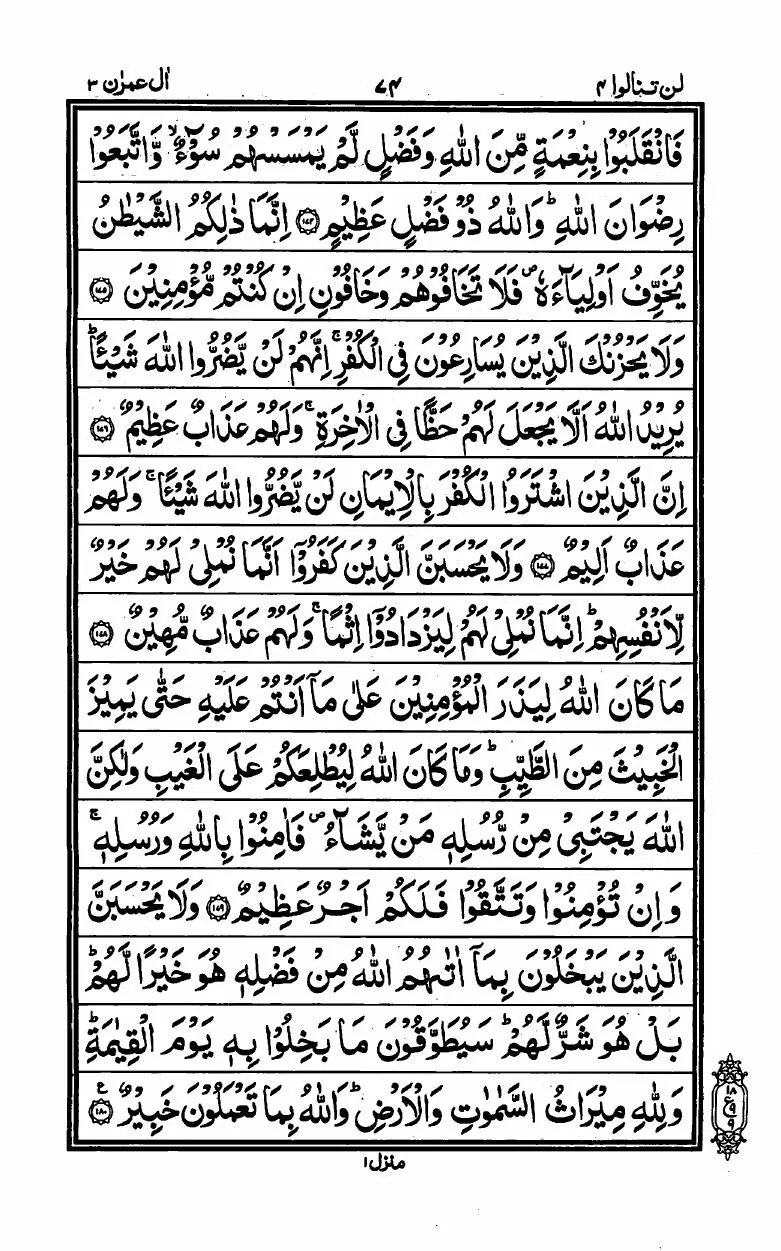 لن تنالوا ۴ ۷۴ اٰل عمرٰن ۳
فَانْقَلَبُوْا بِنِعْمَةٍ مِّنَ اللّٰهِ وَفَضْلٍ لَّمْ يَمْسَسْهُمْ سُوْٓءٌ ۙ وَّاتَّبَعُوْا
رِضْوَانَ اللّٰهِ ؕ وَاللّٰهُ ذُوْ فَضْلٍ عَظِيْمٍ ﴿۱۷۴﴾ اِنَّمَا ذٰلِكُمُ الشَّيْطٰنُ
يُخَوِّفُ اَوْلِيَآءَهٗ ۪ فَلَا تَخَافُوْهُمْ وَخَافُوْنِ اِنْ كُنْتُمْ مُّؤْمِنِيْنَ ﴿۱۷۵﴾
وَلَا يَحْزُنْكَ الَّذِيْنَ يُسَارِعُوْنَ فِى الْكُفْرِ ۚ اِنَّهُمْ لَنْ يَّضُرُّوا اللّٰهَ شَيْئًا ؕ
يُرِيْدُ اللّٰهُ اَلَّا يَجْعَلَ لَهُمْ حَظًّا فِى الْاٰخِرَةِ ۚ وَلَهُمْ عَذَابٌ عَظِيْمٌ ﴿۱۷۶﴾
اِنَّ الَّذِيْنَ اشْتَرَوُا الْكُفْرَ بِالْاِيْمَانِ لَنْ يَّضُرُّوا اللّٰهَ شَيْئًا ۚ وَلَهُمْ
عَذَابٌ اَلِيْمٌ ﴿۱۷۷﴾ وَلَا يَحْسَبَنَّ الَّذِيْنَ كَفَرُوْٓا اَنَّمَا نُمْلِىْ لَهُمْ خَيْرٌ
لِّاَنْفُسِهِمْ ؕ اِنَّمَا نُمْلِىْ لَهُمْ لِيَزْدَادُوْٓا اِثْمًا ۚ وَلَهُمْ عَذَابٌ مُّهِيْنٌ ﴿۱۷۸﴾
مَا كَانَ اللّٰهُ لِيَذَرَ الْمُؤْمِنِيْنَ عَلٰى مَآ اَنْتُمْ عَلَيْهِ حَتّٰى يَمِيْزَ
الْخَبِيْثَ مِنَ الطَّيِّبِ ؕ وَمَا كَانَ اللّٰهُ لِيُطْلِعَكُمْ عَلَى الْغَيْبِ وَلٰكِنَّ
اللّٰهَ يَجْتَبِىْ مِنْ رُّسُلِهٖ مَنْ يَّشَآءُ ۪ فَاٰمِنُوْا بِاللّٰهِ وَرُسُلِهٖ ۚ
وَاِنْ تُؤْمِنُوْا وَتَتَّقُوْا فَلَكُمْ اَجْرٌ عَظِيْمٌ ﴿۱۷۹﴾ وَلَا يَحْسَبَنَّ
الَّذِيْنَ يَبْخَلُوْنَ بِمَآ اٰتٰىهُمُ اللّٰهُ مِنْ فَضْلِهٖ هُوَ خَيْرًا لَّهُمْ ؕ
بَلْ هُوَ شَرٌّ لَّهُمْ ؕ سَيُطَوَّقُوْنَ مَا بَخِلُوْا بِهٖ يَوْمَ الْقِيٰمَةِ ؕ
وَلِلّٰهِ مِيْرَاثُ السَّمٰوٰتِ وَالْاَرْضِ ؕ وَاللّٰهُ بِمَا تَعْمَلُوْنَ خَبِيْرٌ ﴿۱۸۰﴾ ع
۱۸
ع ۹
۹
منزل ۱